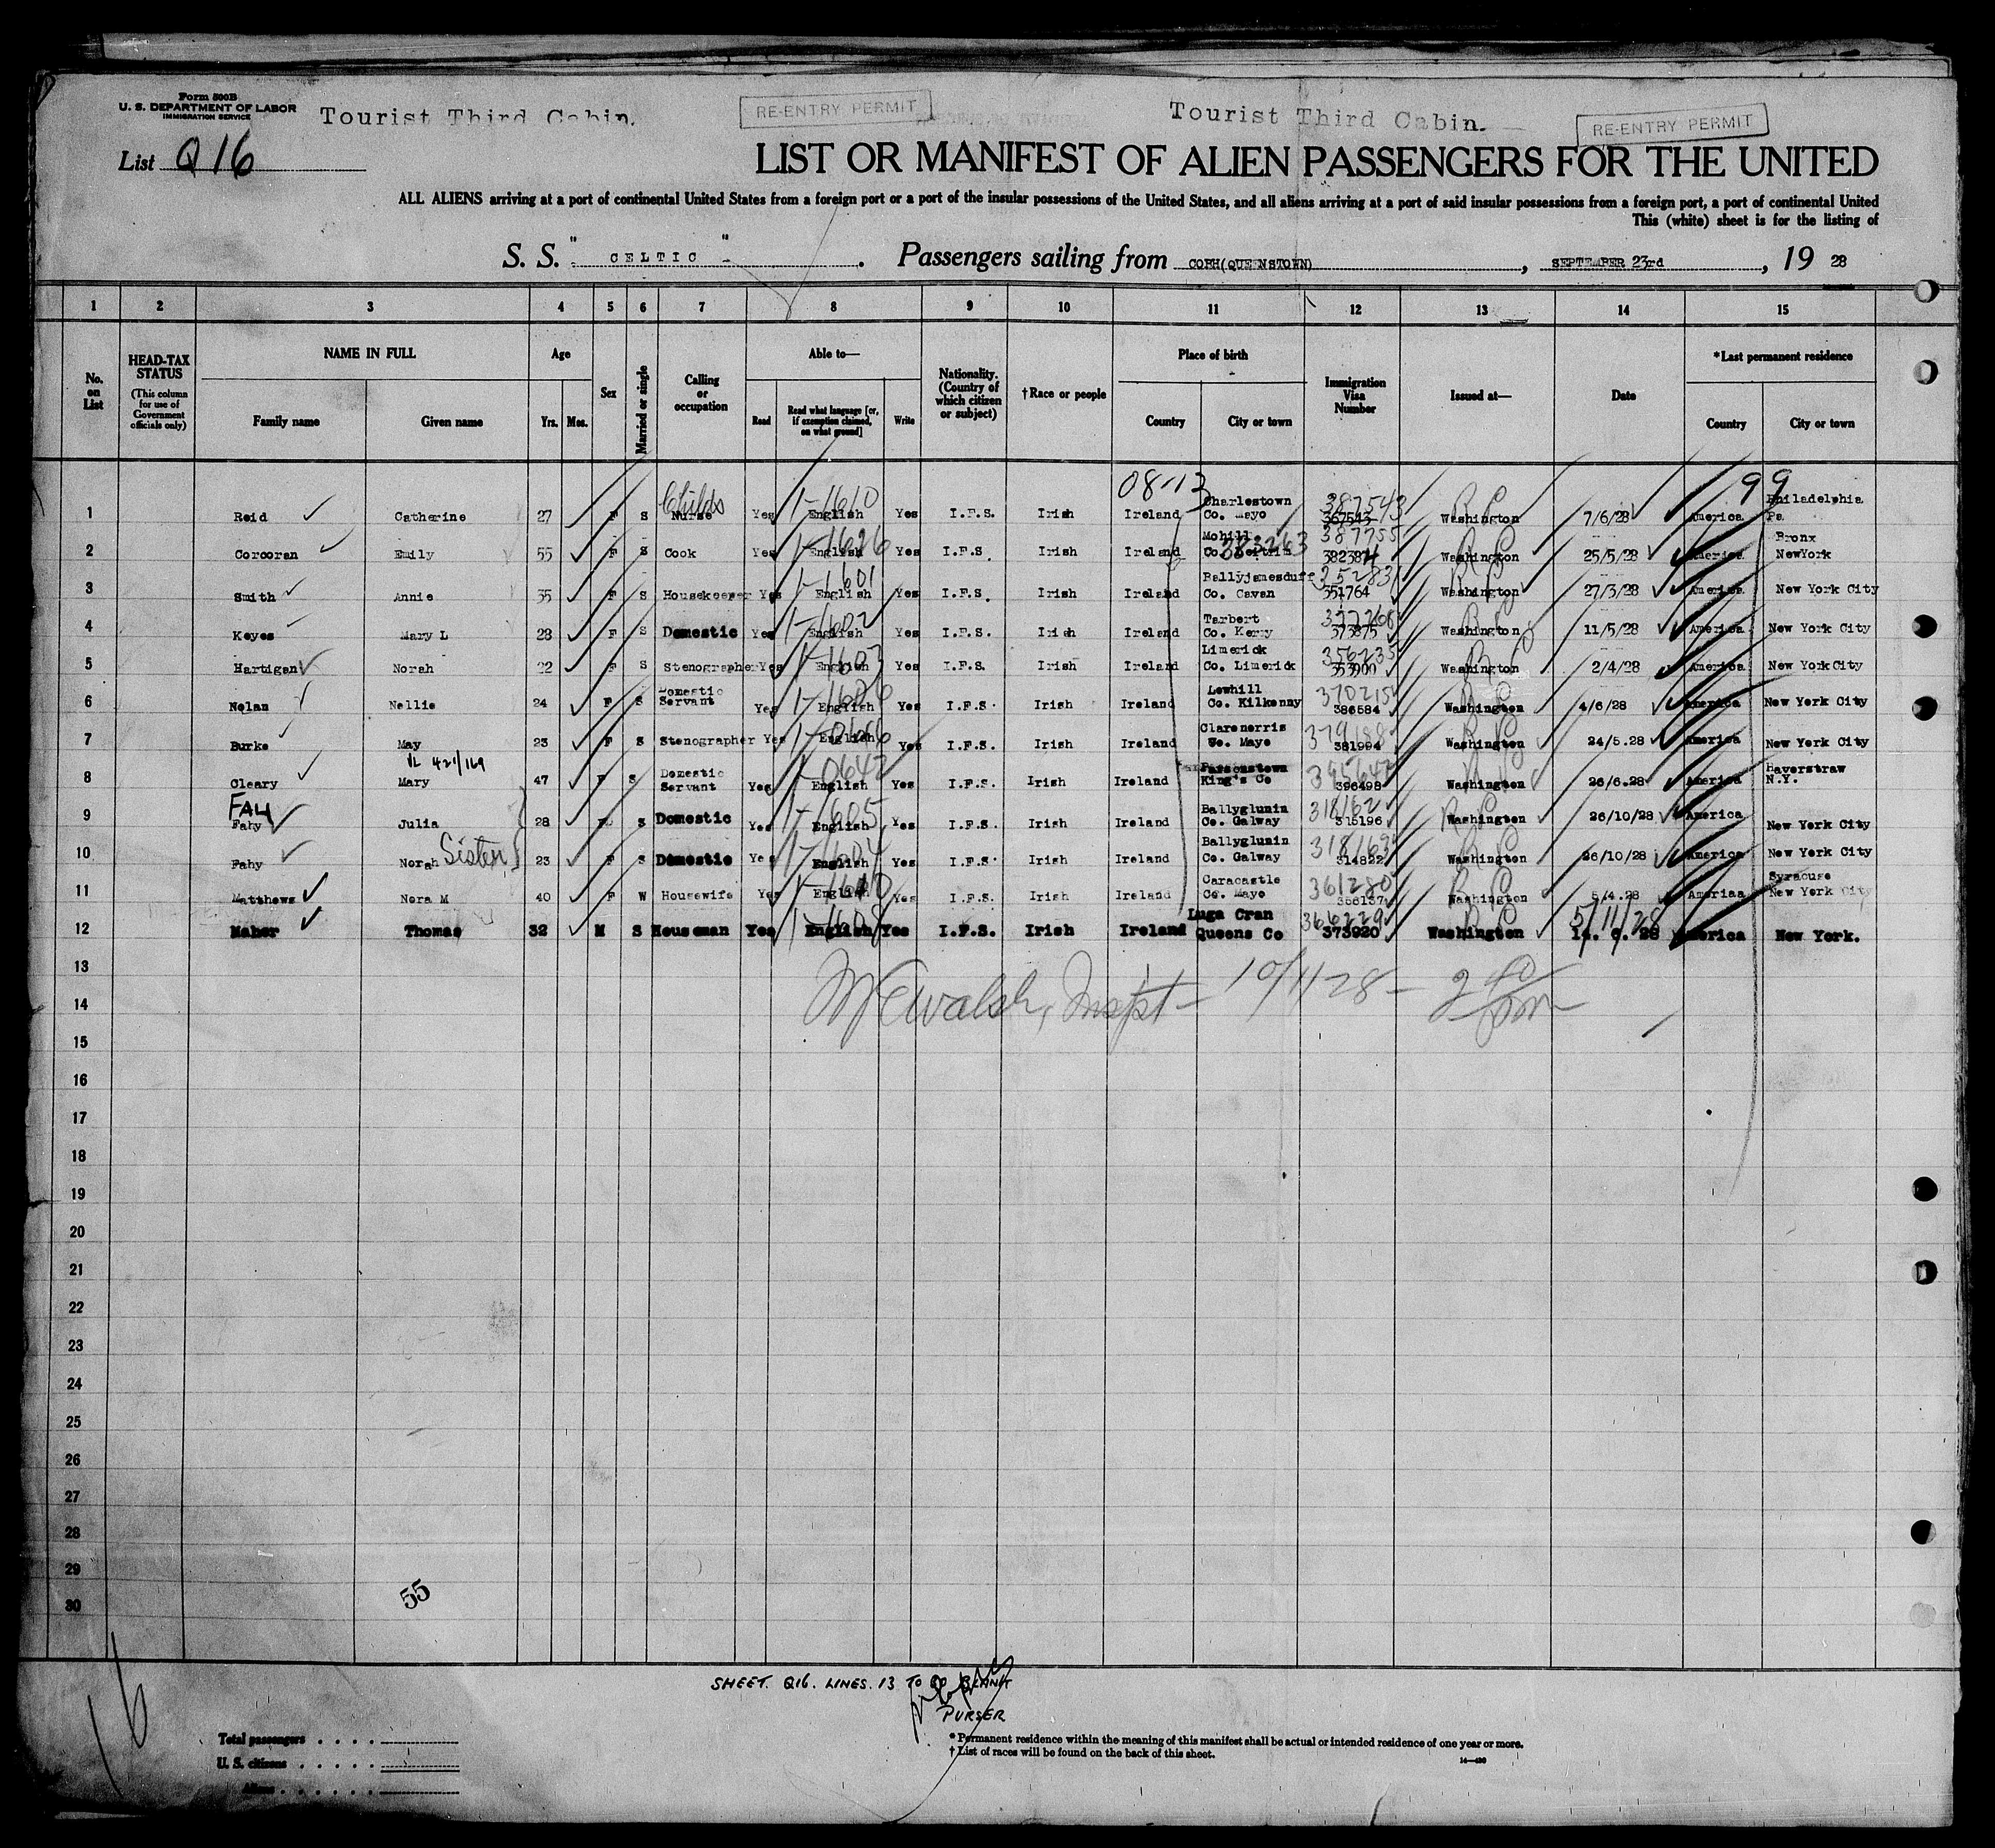 Form 500B
U. S. DEPARTMENT OF LABOR
IMMIGRATION SERVICE
Tourist Third Cabin.
RE-ENTRY PERMIT
Tourist Third Cabin.
RE-ENTRY PERMIT
List Q 16
LIST OR MANIFEST OF ALIEN PASSENGERS FOR THE UNITED
ALL ALIENS arriving at a port of continental United States from a foreign port or a port of the insular possessions of the United States, and all aliens arriving at a port of said insular possessions from a foreign port, a port of continental United
This (white) sheet is for the listing of
S. S. " CELTIC " . Passengers sailing from COBH(QUEENSTOWN) , SEPTEMBER 23rd , 19 28
1 2 3 4 5 6 7 8 9 10 11 12 13 14 15
No. on List
HEAD-TAX STATUS (This column for use of Government officials only)
NAME IN FULL
Family name Given name
Age
Yrs. Mos.
Sex
Married or single
Calling or occupation
Able to—
Read Read what language [or, if exemption claimed, on what ground] Write
Nationality. (Country of which citizen or subject)
†Race or people
Place of birth
Country City or town
Immigration Visa Number
Issued at—
Date
*Last permanent residence
Country City or town
08-13 99
1 Reid Catherine 27 F S Childs Nurse Yes 1-1610 English Yes I.F.S. Irish Ireland Charlestown Co. Mayo 387543 367543 Washington 7/6/28 America Philadelphia Pa
2 Corcoran Emily 55 F S Cook Yes 1-1626 English Yes I.F.S. Irish Ireland Mohill Co. Leitrim 383263 387755 382384 Washington 25/5/28 America Bronx NewYork
3 Smith Annie 35 F S Housekeeper Yes 1-1601 English Yes I.F.S. Irish Ireland Ballyjamesduff Co. Cavan 352831 351764 Washington 27/3/28 America New York City
4 Keyes Mary L 28 F S Domestic Yes 1-1602 English Yes I.F.S. Irish Ireland Tarbert Co. Kerry 377768 373875 Washington 11/5/28 America New York City
5 Hartigan Norah 22 F S Stenographer Yes 1-1603 English Yes I.F.S. Irish Ireland Limerick Co. Limerick 356235 353900 Washington 2/4/28 America New York City
6 Nolan Nellie 24 F S Domestic Servant Yes 1-1606 English Yes I.F.S. Irish Ireland Lowhill Co. Kilkenny 370215 386584 Washington 4/6/28 America New York City
7 Burke May 23 F S Stenographer Yes 1-0666 English Yes I.F.S. Irish Ireland Claremorris Co. Mayo 379188 381994 Washington 24/5.28 America New York City
VL 421/169
8 Cleary Mary 47 F S Domestic Servant Yes 1-0642 English Yes I.F.S. Irish Ireland Parsonstown King's Co 395642 396498 Washington 26/6.28 America Haverstraw N.Y.
FAH
9 Fahy Julia 28 F S Domestic Yes 1-1605 English Yes I.F.S. Irish Ireland Ballyglunin Co. Galway 318162 315196 Washington 26/10/28 America New York City
10 Fahy Norah Sister 23 F S Domestic Yes 1-1604 English Yes I.F.S. Irish Ireland Ballyglunin Co. Galway 318163 314822 Washington 26/10/28 America New York City
11 Matthews Nora M 40 F W Housewife Yes English Yes I.F.S. Irish Ireland Caracastle Co. Mayo 361280 358137 Washington 5/4.28 America Syracuse New York City
12 Maher Thomas 32 M S Houseman Yes 1-1608 English Yes I.F.S. Irish Ireland Luga Cran Queens Co 366229 373920 Washington 5/11/28 America New York.
13
Walsh, Inspt - 10/1/28 - 2 40 pm
14
15
16
17
18
19
20
21
22
23
24
25
26
27
28
29
30
55
16
SHEET. Q16. LINES. 13 TO 30 BLANK
PURSER
Total passengers
U. S. citizens
Aliens
* Permanent residence within the meaning of this manifest shall be actual or intended residence of one year or more.
† List of races will be found on the back of this sheet.